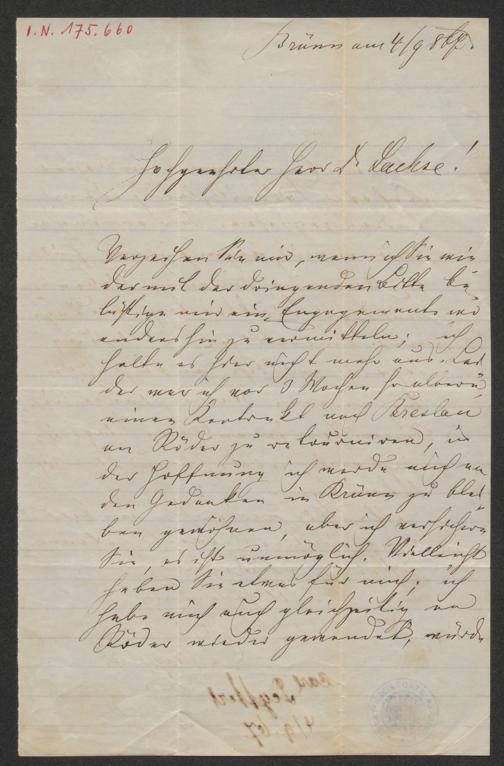 I.N. 175.660
Brünn am 4/9 867.
Hochgeehrter Herr Dr Sachse!
Verzeihen Sie mir, wenn ich Sie wie
der mit der dringenden Bitte be
lästige mir ein Engagement wo
anders hin zu vermitteln; ich
halte es hier nicht mehr aus. Lei
der war ich vor 3 Wochen so albern
einen Kontrakt nach Breslau
an Röder zu retourniren, in
der Hoffnung ich werde mich an
den Gedanken in Brünn zu blei
ben gewöhnen, aber ich versichere
Sie, es ist unmöglich. Vielleicht
haben Sie etwas für mich; ich
habe mich auch gleichzeitig an
Röder wieder gewendet, würde
Carl Seyffert
4/9. 67